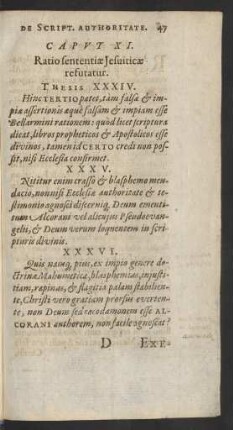 DE SCRIPT. AUTHORITATE. 47
CAPVT XI.
Ratio sententiæ Jesuiticæ
refutatur.
THESIS XXXIV.
Hinc TERTIO patet, tam falsæ & im-
piæ assertionis æquè falsam & impiam esse
Bellarmini rationem: quòd licet scriptura
dicat, libros propheticos & Apostolicos esse
divinos, tamen id CERTO credi non pos-
sit, nisi Ecclesia confirmet.
XXXV.
Nititur enim crasso & blasphemo men-
dacio, non nisi Ecclesiæ authoritate & te-
stimonio agnosci discerniq, Deum ementi-
tum Alcorani vel alicujus Pseudoevan-
gelii, & Deum verum loquentem in scri-
pturis divinis.
XXXVI.
Quis namq, pius, ex impio genere do-
ctrinæ Mahumetica, blasphemias, injusti-
tiam, rapinas, & flagitia palam stabilien-
te, Christi verò gratiam prorsus everten-
te, non Deum sed cacodæmonem esse AL-
CORANI authorem, non facile agnoscat?
D EXE-